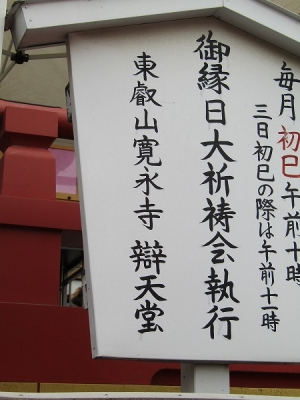 毎月初巳午前十時
三日初巳の際は午前十一時
御縁日大祈祷会執行
東叡山寛永寺 辯天堂